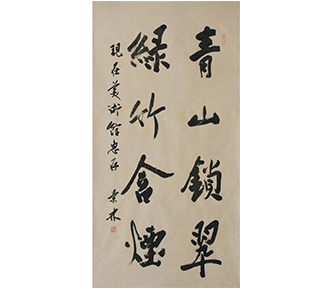 青山鎖翠
綠竹含煙
現在美術館惠存